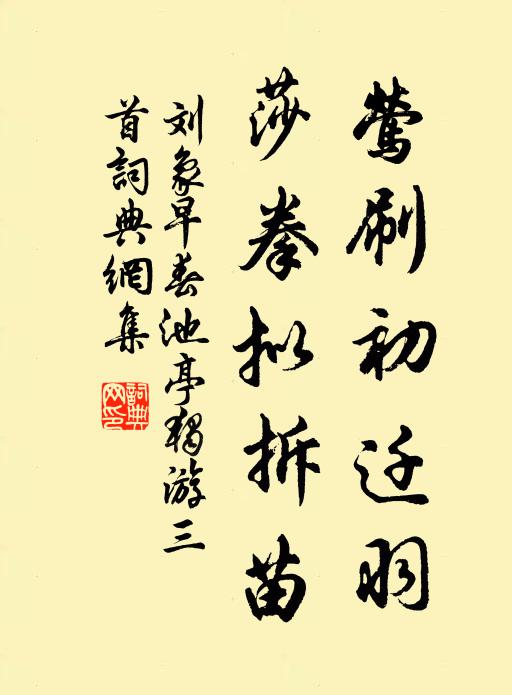 莺刷初迁羽
莎拳拟拆苗
刘象早春池亭独游三
首詞典網集
詞典
网印